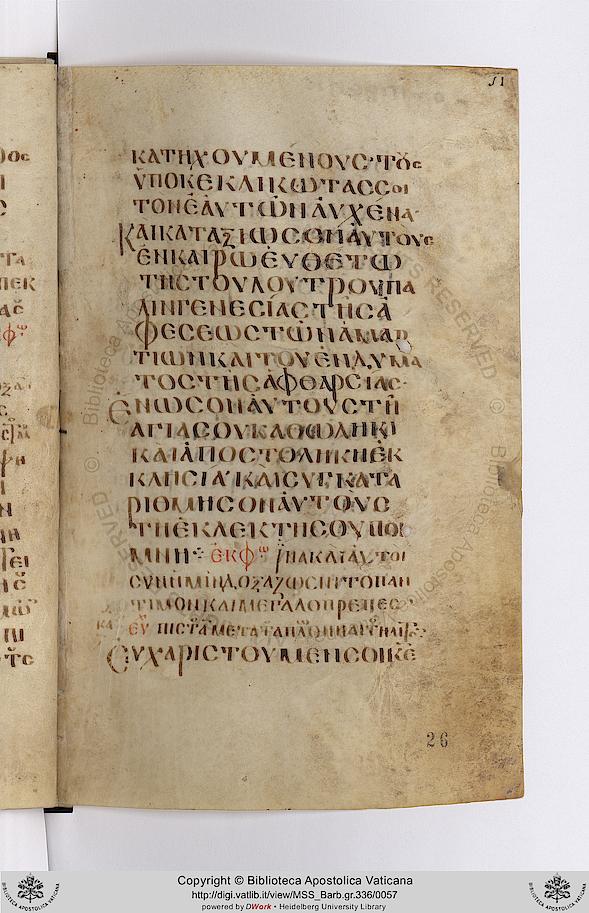 51
ΚΑΤΗΧΟΥΜΕΝΟΥΣ· ΤΟΥΣ
ΫΠΟΚΕΚΛΙΚΩΤΑΣ ΣΟΙ
ΤΟΝ ΕΑΥΤΩΝ ΑΥΧΕΝΑ·
ΚΑΙ ΚΑΤΑΞΙΩΣΟΝ ΑΥΤΟΥΣ
ΕΝ ΚΑΙΡΩ ΕΥΘΕΤΩ
ΤΗΣ ΤΟΥ ΛΟΥΤΡΟΥ ΠΑ
ΛΙΝΓΕΝΕΣΙΑΣ ΤΗΣ Α
ΦΕΣΕΩΣ ΤΩΝ ΑΜΑΡ
ΤΙΩΝ ΚΑΙ ΤΟΥ ΕΝΔΥΜΑ
ΤΟΣ ΤΗΣ ΑΦΘΑΡΣΙΑΣ·
ΕΝΩΣΟΝ ΑΥΤΟΥΣ ΤΗ
ΑΓΙΑ ΣΟΥ ΚΑΘΩΛΙΚΙ
ΚΑΙ ΑΠΟΣΤΟΛΙΚΗ ΕΚ
ΚΛΗΣΙΑ· ΚΑΙ ΣΥΓΚΑΤΑ
ΡΙΟΜΗΣΟΝ ΑΥΤΟΥΣ
ΤΗ ΕΚΛΕΚΤΗ ΣΟΥ ΠΟΙ
ΜΝΗ· ΕΚΦΩ ΙΝΑ ΚΑΙ ΑΥΤΟΙ
ΣΥΝ ΗΜΙΝ ΔΟΞΑΖΩΣΗΝ ΤΟ ΠΑΝ
ΤΙΜΟΝ ΚΑΙ ΜΕΓΑΛΟΠΡΕΠΕΣ
ΕΥ ΠΙΣΤ Α ΜΕΤΑ ΤΑ
ΕΥΧΑΡΙΣΤΟΥΜΕΝ ΣΟΙ ΚΕ
26
Copyright © Biblioteca Apostolica Vaticana
http://digi.vatlib.it/view/MSS_Barb.gr.336/0057
powered by DWork • Heidelberg University Library